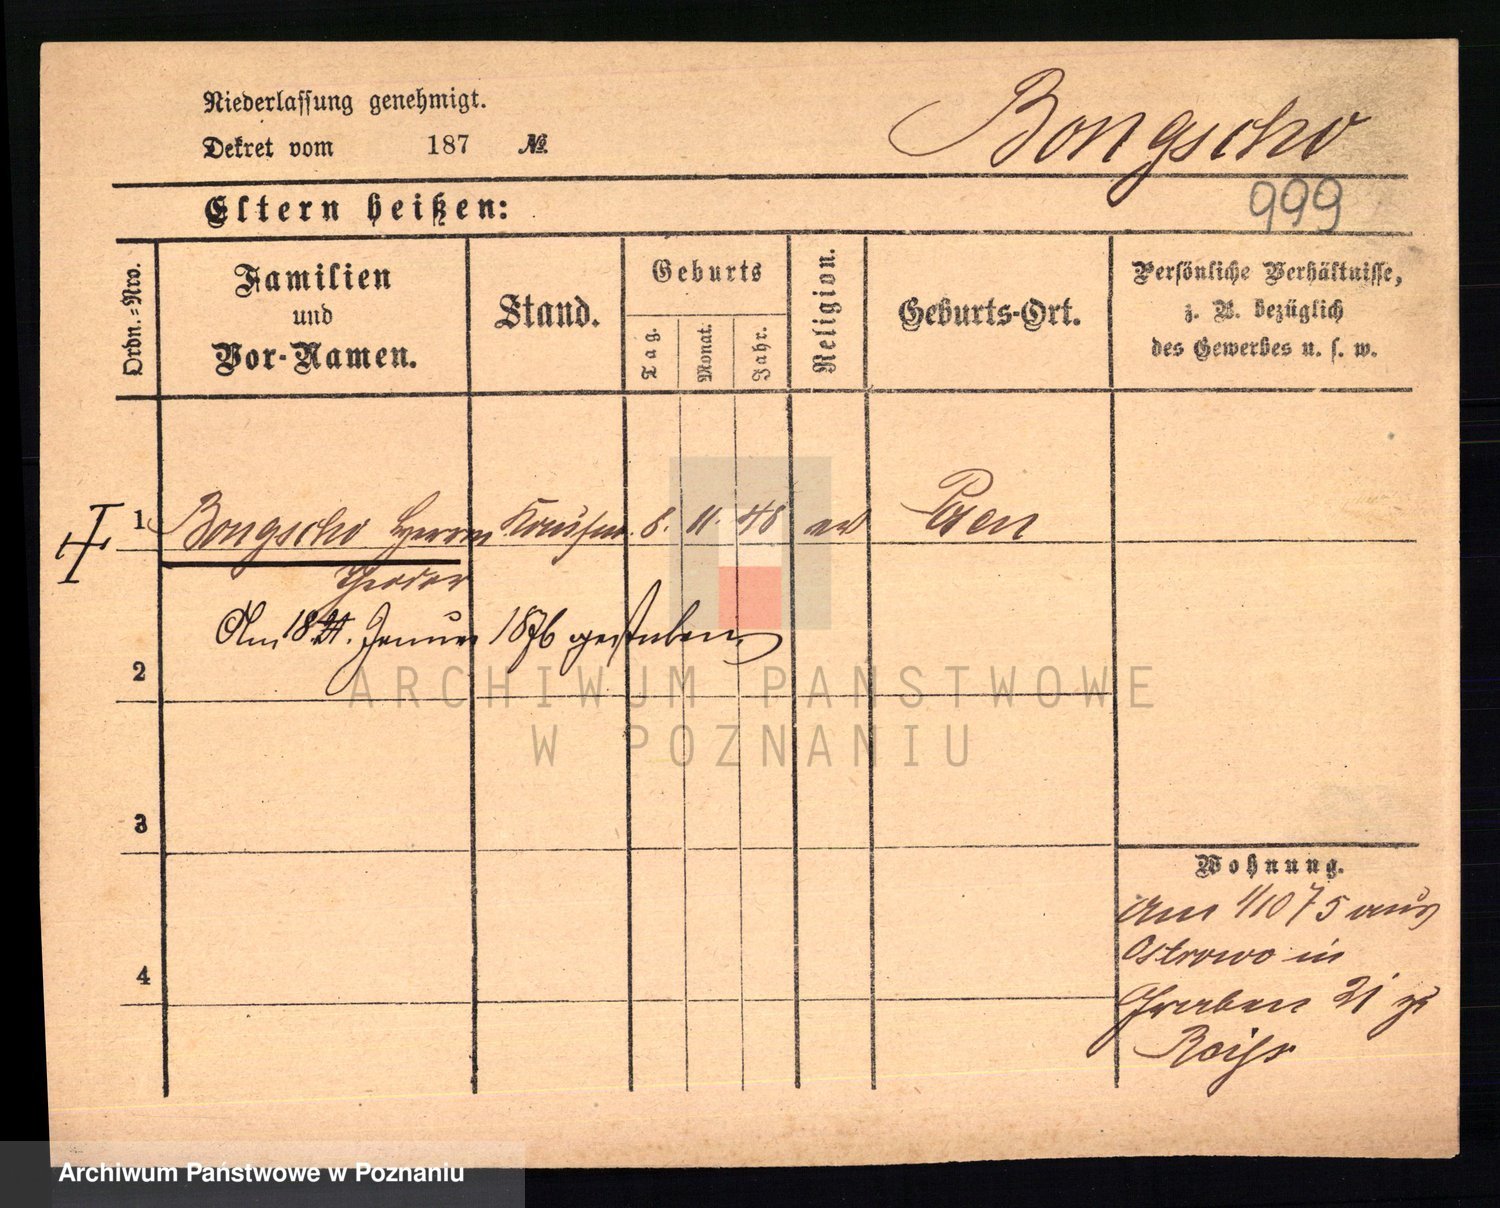 Niederlassung genehmigt.
Dekret vom 187 №.
Bongscho
999
Eltern heißen:
Ordn.=Nro.
Familien
und
Vor-Namen.
Stand.
Geburts
Tag.
Monat.
Jahr.
Religion.
Geburts-Ort.
Persönliche Verhältnisse,
z. B. bezüglich
des Gewerbes u. s. w.
1 Bongscho Herrm Kaufm. 8. 11. 48 ev Posen
Theodor
Am 18 Januar 1876 gestorben
2
3
4
Wohnung.
Am 1/10 75 aus
Ostrowo in
Graben 21 zu
ARCHIWUM PAŃSTWOWE
W POZNANIU
Archiwum Państwowe w Poznaniu